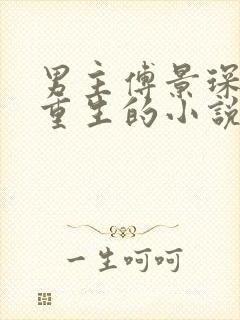 男主傅景琛
重生的小説
一生呵呵